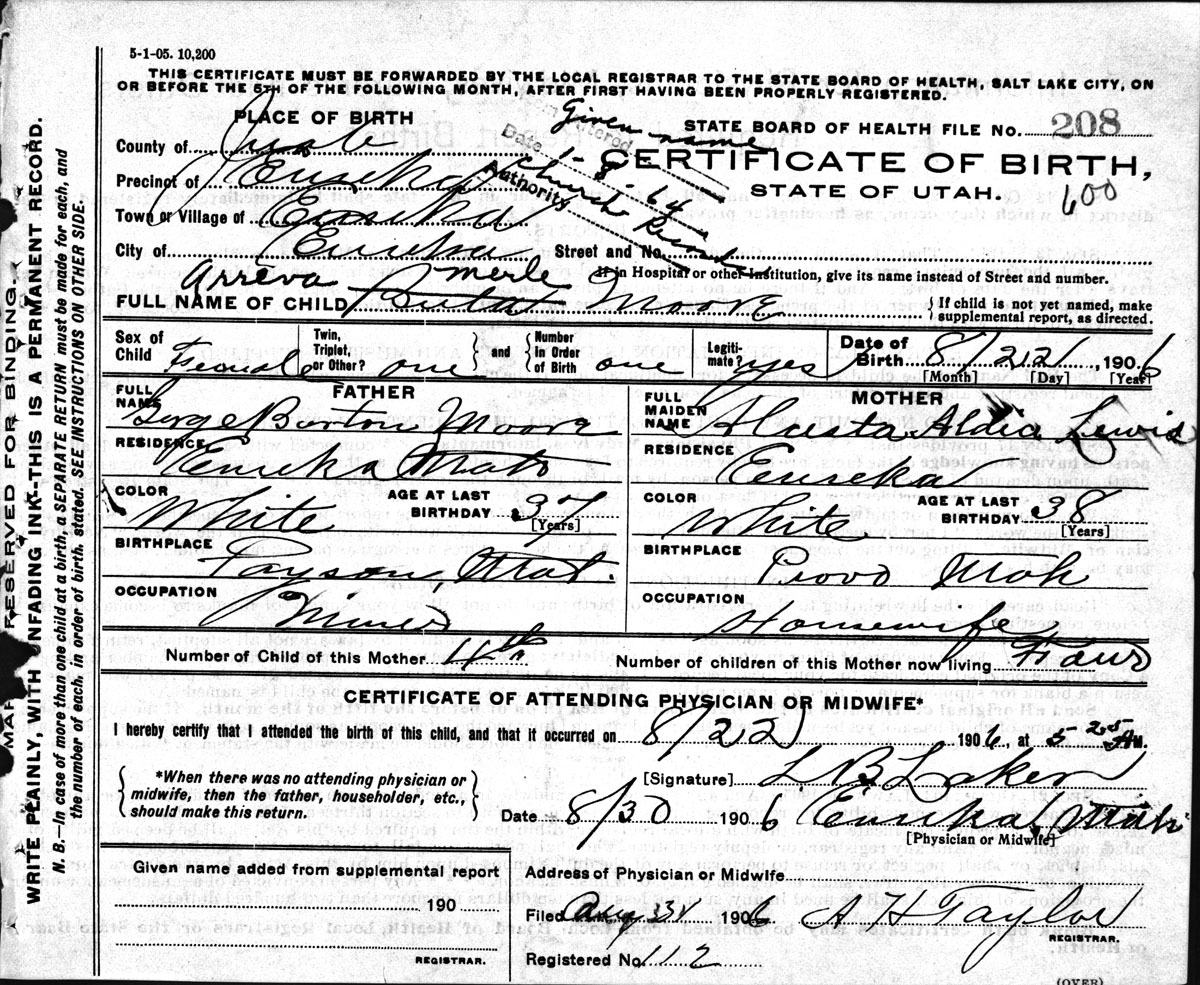 5-1-05. 10,200
THIS CERTIFICATE MUST BE FORWARDED BY THE LOCAL REGISTRAR TO THE STATE BOARD OF HEALTH, SALT LAKE CITY, ON
OR BEFORE THE 5TH OF THE FOLLOWING MONTH, AFTER FIRST HAVING BEEN PROPERLY REGISTERED.
PLACE OF BIRTH
Given name
STATE BOARD OF HEALTH FILE NO. 208
County of Juab
Date
CERTIFICATE OF BIRTH,
Precinct of Eureka
Authority Church Record
STATE OF UTAH.
600
Town or Village of Eureka
City of Eureka Street and No.
Arreva Merle
If in Hospital or other Institution, give its name instead of Street and number.
FULL NAME OF CHILD Moore
If child is not yet named, make
supplemental report, as directed.
Sex of Child Female
Twin, Triplet, or Other? one and Number In Order of Birth one
Legitimate? yes
Date of Birth 8/22/, 1906
[Month] [Day] [Year]
FATHER
FULL NAME George Burton Moore
RESIDENCE Eureka Utah
COLOR White AGE AT LAST BIRTHDAY 37 [Years]
BIRTHPLACE Payson, Utah.
OCCUPATION Miner
MOTHER
FULL MAIDEN NAME Aldia Lewis
RESIDENCE Eureka
COLOR White AGE AT LAST BIRTHDAY 38 [Years]
BIRTHPLACE Provo Utah
OCCUPATION Housewife
Number of Child of this Mother 4th Number of children of this Mother now living Four
CERTIFICATE OF ATTENDING PHYSICIAN OR MIDWIFE*
I hereby certify that I attended the birth of this child, and that it occurred on 8/22/ 1906, at 5 25 AM.
*When there was no attending physician or
midwife, then the father, householder, etc.,
should make this return.
[Signature] L B Laker
Date 8/30 1906 Eureka Utah
[Physician or Midwife]
Given name added from supplemental report
190
REGISTRAR.
Address of Physician or Midwife
Filed Aug 1906 Taylor
REGISTRAR.
Registered No. 112
(OVER)
MARGIN RESERVED FOR BINDING.
WRITE PLAINLY, WITH UNFADING INK-THIS IS A PERMANENT RECORD.
N. B.—In case of more than one child at a birth, a SEPARATE RETURN must be made for each, and
the number of each, in order of birth, stated. SEE INSTRUCTIONS ON OTHER SIDE.